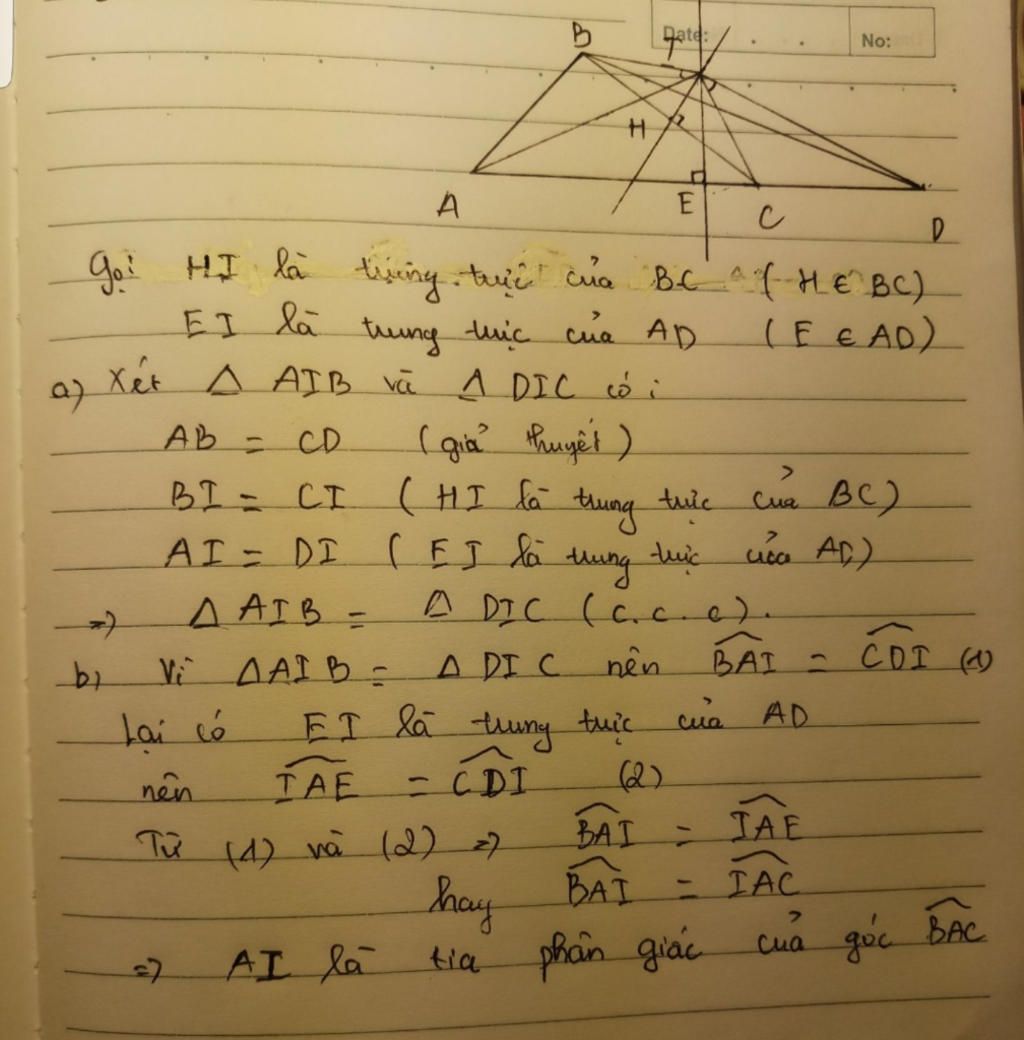 Date:
No:
B
I
H
A
E
C
D
Gọi HI là trung trực của BC ( H ∈ BC)
EI là trung trực của AD ( E ∈ AD)
a) Xét Δ AIB và Δ DIC có :
AB = CD (giả thuyết)
BI = CI ( HI là trung trực của BC)
AI = DI ( EI là trung trực của AD)
=> Δ AIB = Δ DIC (c.c.c).
b) Vì ΔAIB = Δ DIC nên \widehat{BAI} = \widehat{CDI} (1)
Lại có EI là trung trực của AD
nên \widehat{IAE} = \widehat{CDI} (2)
Từ (1) và (2) => \widehat{BAI} = \widehat{IAE}
hay \widehat{BAI} = \widehat{IAC}
=> AI là tia phân giác của góc \widehat{BAC}